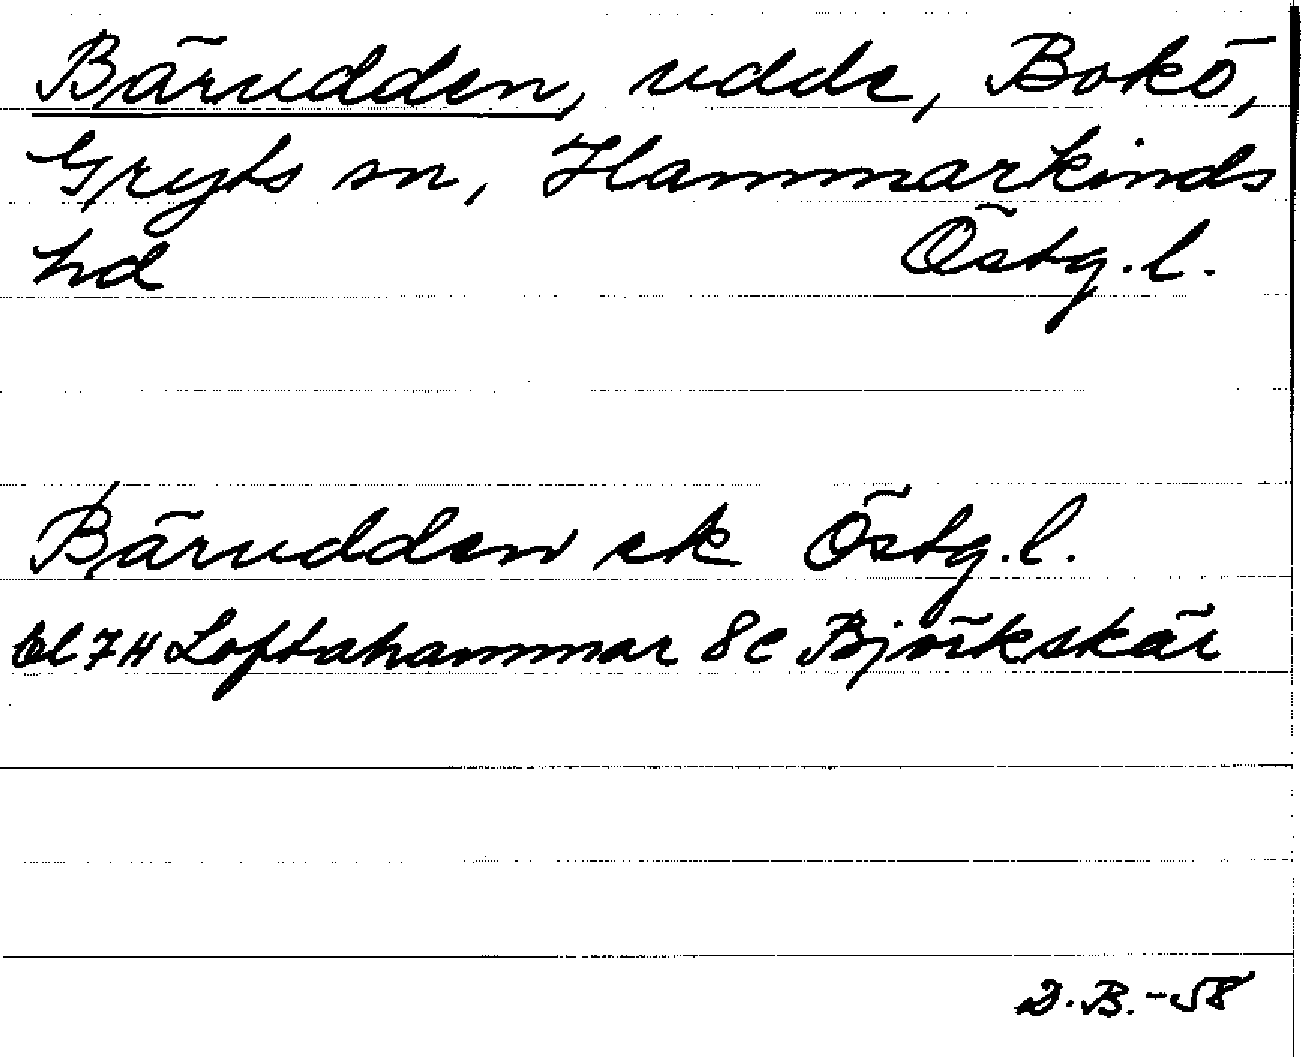 Bärudden, udde, Bokö,
Gryts sn, Hammarkinds
hd Östg. l.
Bärudden ek Östg. l.
bl 7H Loftahammar 8e Björkskär
D.B.-58